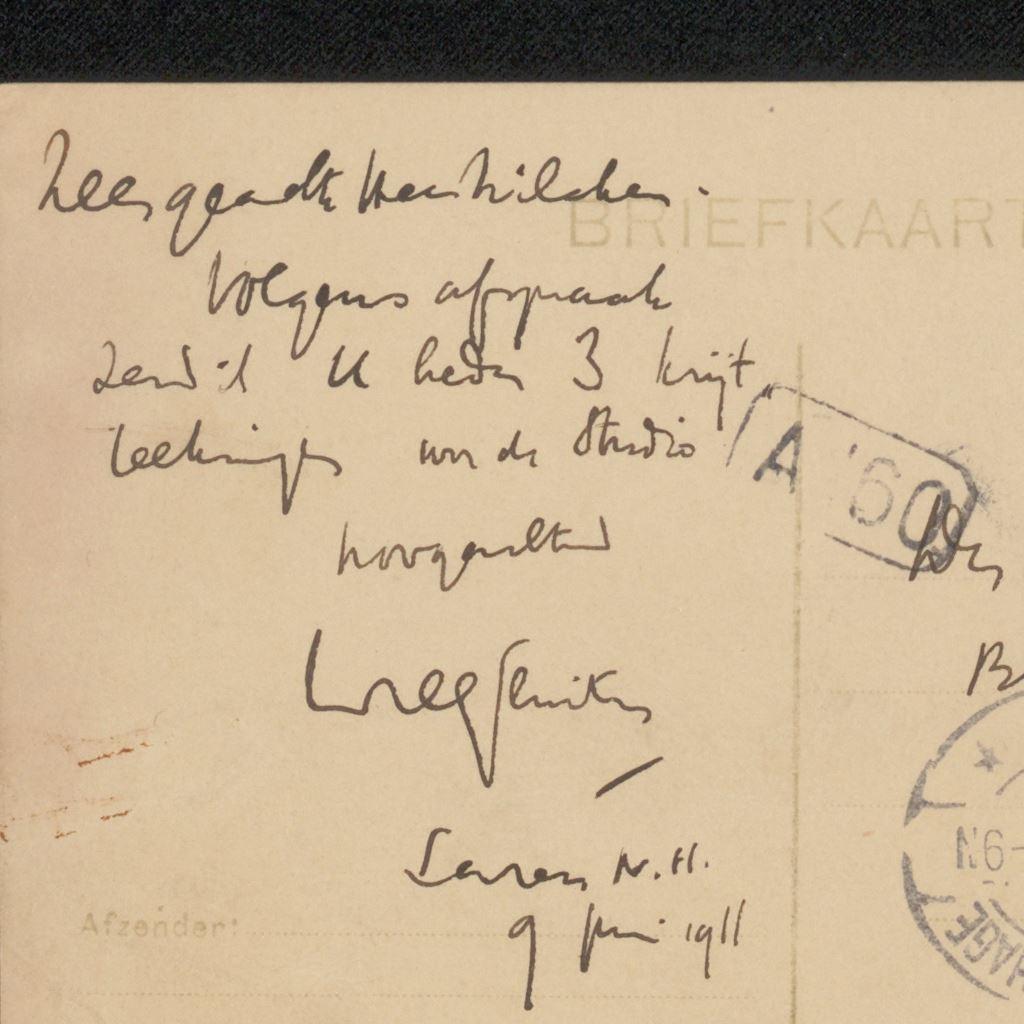 Zeer geachte Heer Zilcken.
BRIEFKAART
Volgens afspraak
zend ik U heden 3 krijt
teekeningen voor de Studio
A '60
hoogachtend
Co Breman
Laren N.H.
9 Juni 1911
Afzender:
N6-
HAGE